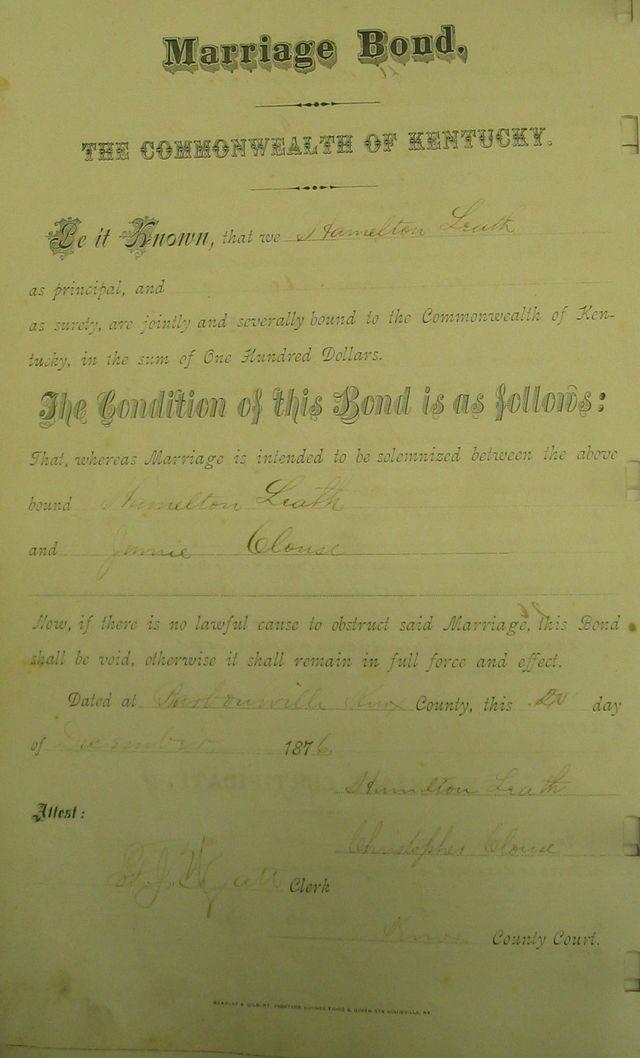 Marriage Bond.
THE COMMONWEALTH OF KENTUCKY.
Be it Known, that we Hamelton Leath
as principal, and
as surety, are jointly and severally bound to the Commonwealth of Ken-
tucky, in the sum of One Hundred Dollars.
The Condition of this Bond is as follows:
That, whereas Marriage is intended to be solemnized between the above
bound Hamelton Leath
and Jennie Clouse
Now, if there is no lawful cause to obstruct said Marriage, this Bond
shall be void, otherwise it shall remain in full force and effect.
Dated at Barbourville Knox County, this day
of December 1876
Hamelton Leath
Attest:
Christopher Clouse
Clerk
Knox County Court.